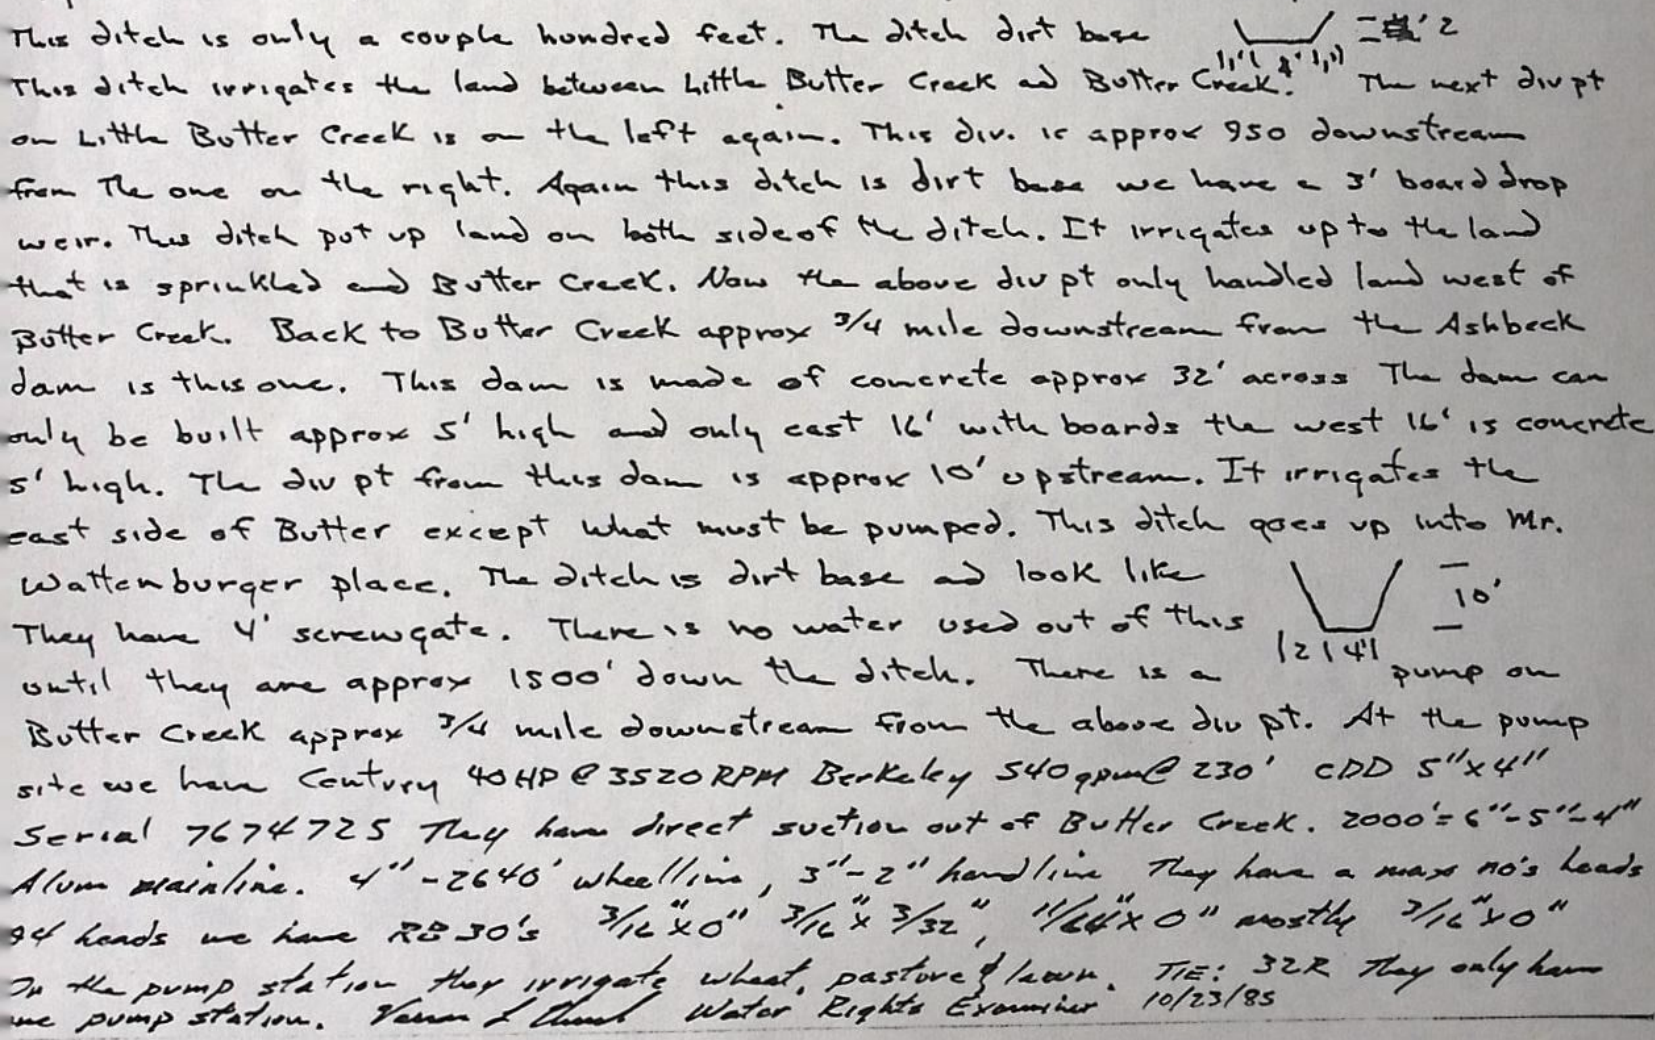 This ditch is only a couple hundred feet. The ditch dirt base 2
This ditch irrigates the land between Little Butter Creek ad Butter Creek. The next div pt
on Little Butter Creek is on the left again. This div. is approx 950 downstream
from The one on the right. Again this ditch is dirt base we have a 3' board drop
weir. This ditch put up land on both side of the ditch. It irrigates up to the land
that is sprinkled and Butter Creek. Now the above div pt only handled land west of
Butter Creek. Back to Butter Creek approx 3/4 mile downstream from the Ashbeck
dam is this one. This dam is made of concrete approx 32' across The dam can
only be built approx 5' high and only east 16' with boards the west 16' is concrete
5' high. The div pt from this dam is approx 10' upstream. It irrigates the
east side of Butter except what must be pumped. This ditch goes up into Mr.
Wattenburger place. The ditch is dirt base ad look like 10'
They have 4' screwgate. There is no water used out of this |2|4'|
until they are approx 1500' down the ditch. There is a pump on
Butter Creek approx 3/4 mile downstream from the above div pt. At the pump
site we have Century 40HP @ 3520 RPM Berkeley 540gpm@ 230' CDD 5"x4"
Serial 7674725 They have direct suction out of Butter Creek. 2000'= 6"-5"-4"
Alum mainline. 4"-2640' wheelline, 3"-2" handline They have a max no's heads
94 heads we have RB 30's 3/16"x0" 3/16"x 3/32", 11/64"x0" mostly 3/16"x0"
In the pump station they irrigate wheat, pasture & lawn. TIE: 32R They only have
one pump station. Water Rights Examiner 10/23/85